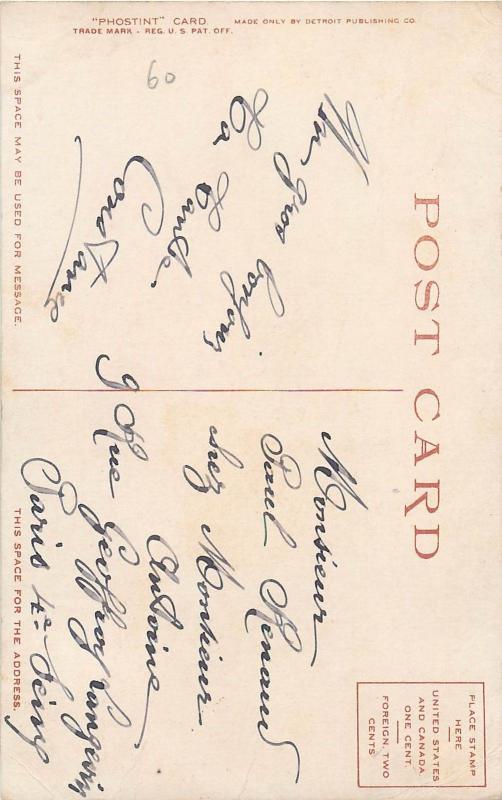 "PHOSTINT" CARD
TRADE MARK - REG. U. S. PAT. OFF.
MADE ONLY BY DETROIT PUBLISHING CO.
60
POST CARD
THIS SPACE MAY BE USED FOR MESSAGE.
Un gros
La Tante
Constance
PLACE STAMP
HERE
UNITED STATES
AND CANADA
ONE CENT.
FOREIGN, TWO
CENTS
Monsieur
Paul Renaud
chez Monsieur
Antoine
9 Rue Geoffroy Langevin
Paris 4e
THIS SPACE FOR THE ADDRESS.